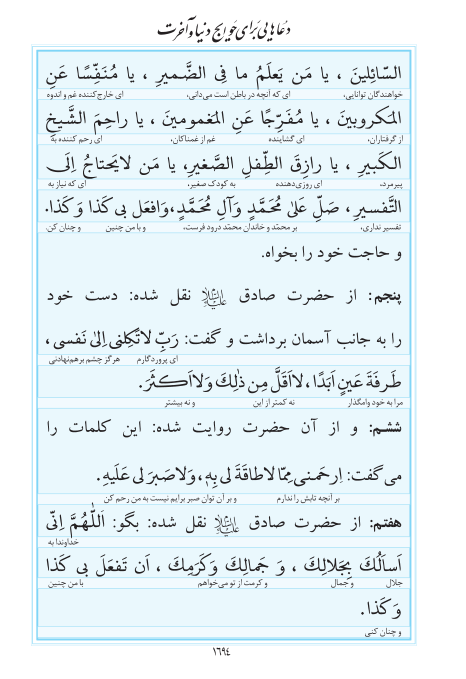 دعاهایی برای حوایج دنیا و آخرت
السّائِلینَ ، یا مَن یَعلَمُ ما فِی الضَّمیرِ ، یا مُنَفِّسًا عَنِ
خواهندگان توانایی، ای که آنچه در باطن است می‌دانی، ای خارج‌کننده غم و اندوه
المَکروبینَ ، یا مُفَرِّجًا عَنِ المَغمومینَ ، یا راحِمَ الشَّیخِ
از گرفتاران، ای گشاینده غم از غمناکان، ای رحم کننده به
الکَبیرِ ، یا رازِقَ الطِّفلِ الصَّغیرِ، یا مَن لایَحتاجُ اِلَی
پیرمرد، ای روزی‌دهنده به کودک صغیر، ای که نیاز به
التَّفسیرِ ، صَلِّ عَلیٰ مُحَمَّدٍ وَآلِ مُحَمَّدٍ،وَافعَل بی کَذا وَ کَذا.
تفسیر نداری، بر محمّد و خاندان محمّد درود فرست، و با من چنین و چنان کن.
و حاجت خود را بخواه.
پنجم: از حضرت صادق علیه‌السلام نقل شده: دست خود
را به جانب آسمان برداشت و گفت: رَبِّ لاتَکِلنی اِلیٰ نَفسی ،
ای پروردگارم هرگز چشم برهم‌نهادنی
طَرفَةَ عَینٍ اَبَدًا ، لااَقَلَّ مِن ذٰلِكَ وَلااَکثَرَ.
مرا به خود وامگذار نه کمتر از این و نه بیشتر
ششم: و از آن حضرت روایت شده: این کلمات را
می‌گفت: اِرحَمنی مِمّا لاطاقَةَ لی بِهِ ، وَلاصَبرَ لی عَلَیهِ.
بر آنچه تابش را ندارم و بر آن توان صبر برایم نیست به من رحم کن
هفتم: از حضرت صادق علیه‌السلام نقل شده: بگو: اَللّٰهُمَّ اِنّی
خداوندا به
اَسأَلُكَ بِجَلالِكَ ، وَ جَمالِكَ وَکَرَمِكَ ، اَن تَفعَلَ بی کَذا
جلال و جمال و کرمت از تو می‌خواهم با من چنین
وَ کَذا.
و چنان کنی
۱۶۹۴